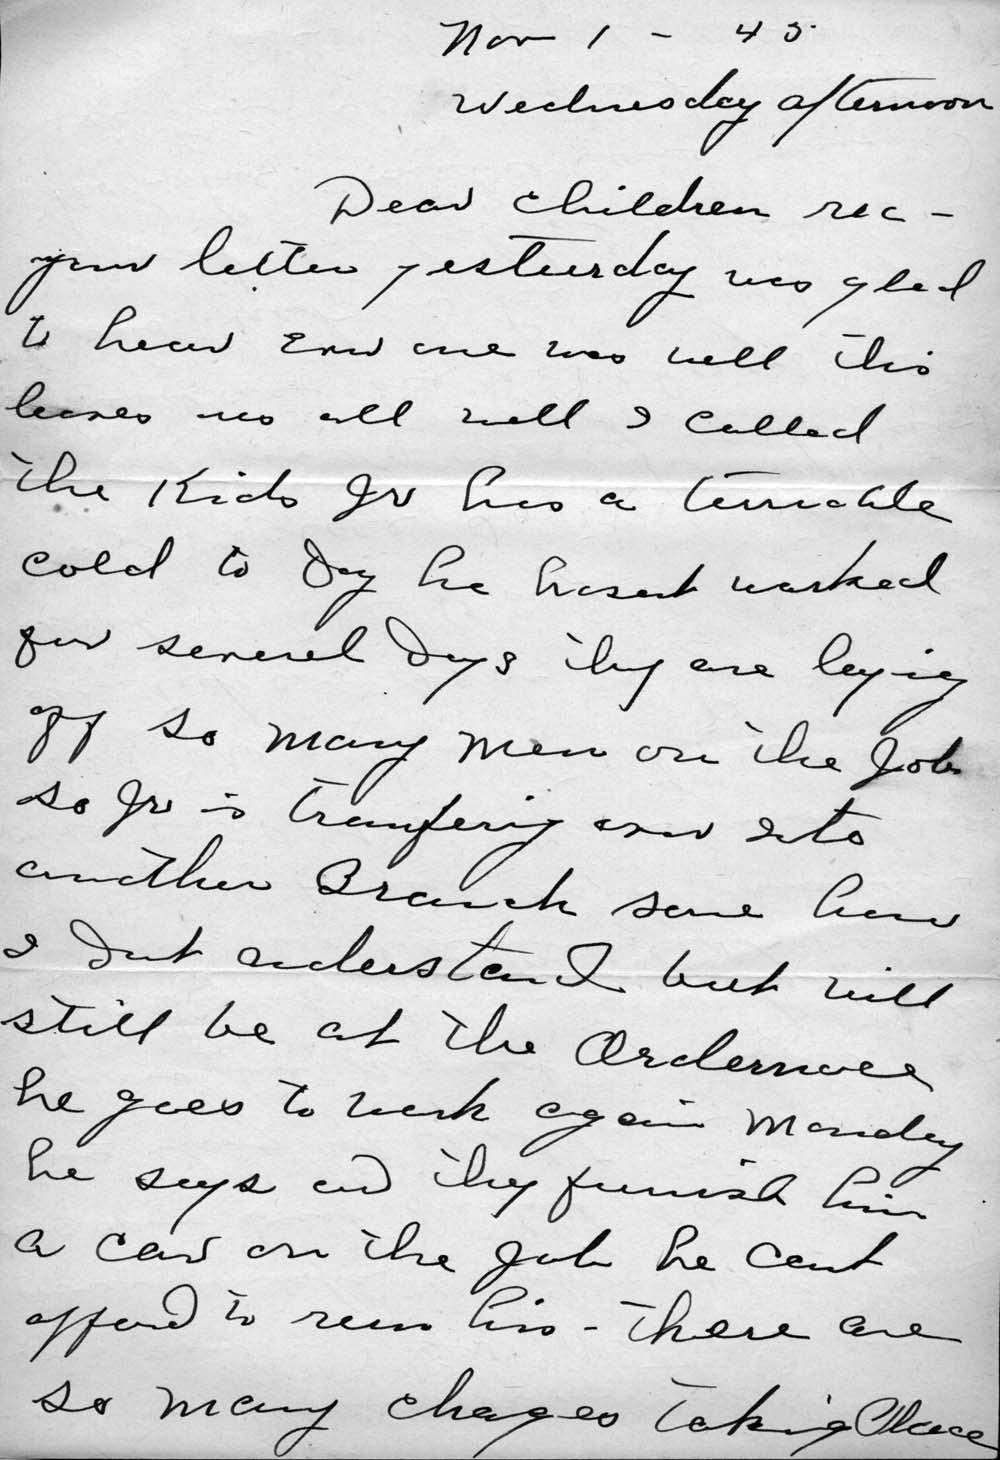 Nov 1 - 45
Wednesday afternoon
Dear children rec -
your letter yesteerday was glad
to hear ever one was well this
leaves us all well I called
the Kids Jr has a terrable
cold to Day he hasent worked
for several Days they are laying
off so many men on the Job
so Jr is tranfering over into
another Branch some how
I Dont understand but will
still be at the Ordernace
he goes to work again Monday
he says and they furnish him
a car on the Job he cant
afford to run his - there are
so many chages taking Place